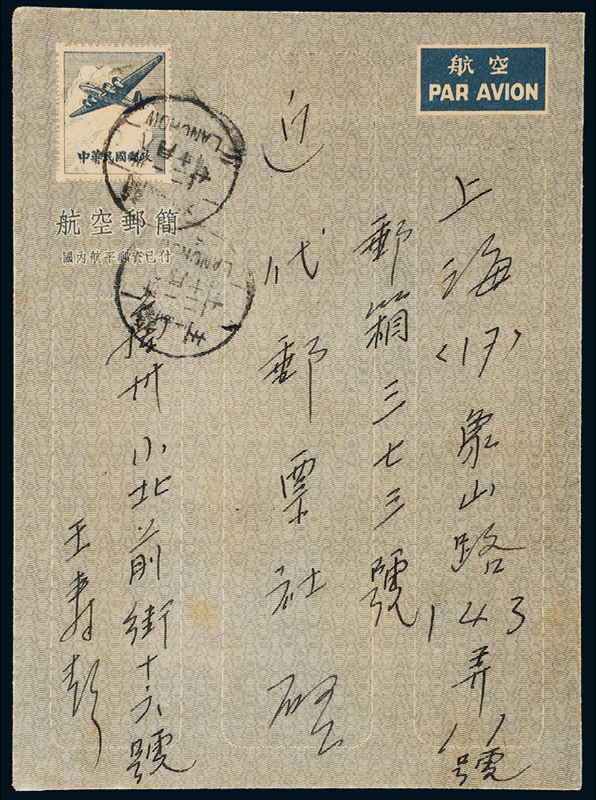 航空
PAR AVION
中華民國郵政
航空郵簡
國內航平郵資已付
LANCHOW
LANCHOW
上海〈17〉象山路143弄11號
郵箱三七三號
近代郵票社 啓
州小北前街十六號
王壽彭